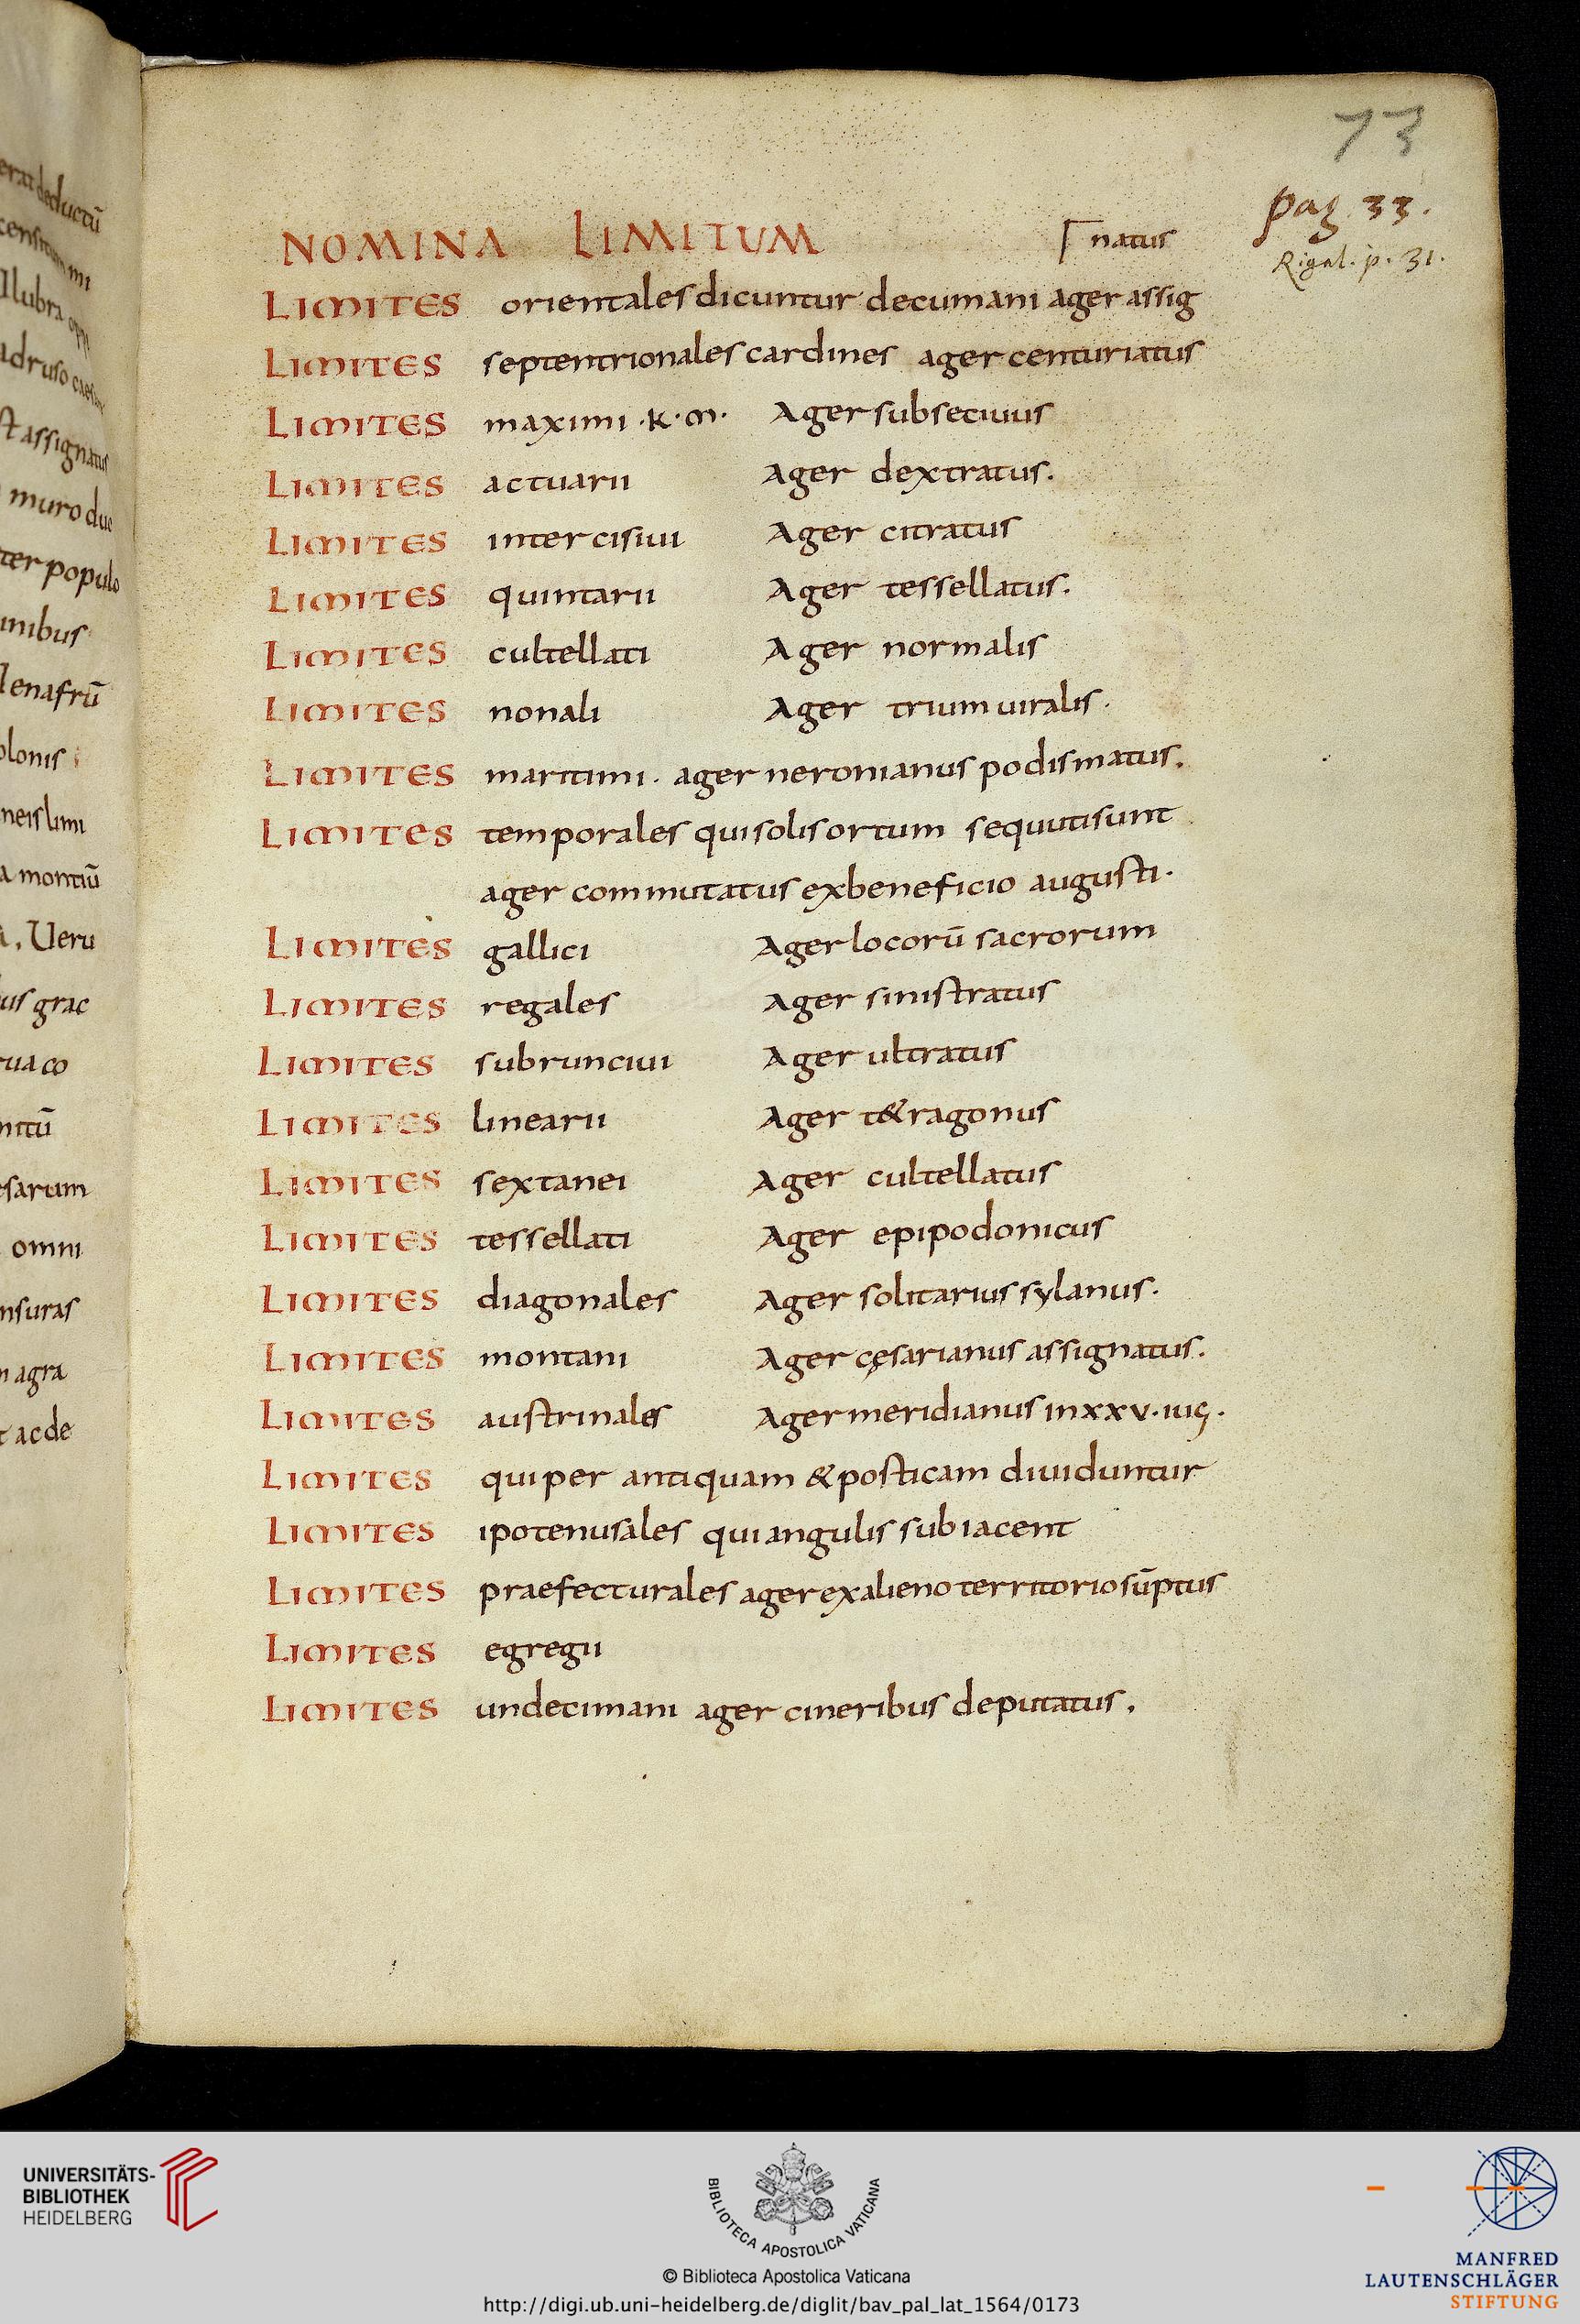 73
pag. 33.
Rigal. p. 31.
NOMINA LIMITUM
natus
LIMITES orientales dicuntur decumani ager assig
LIMITES septentrionales cardines ager centuriatus
LIMITES maximi ·K·M· Ager subsecivus
LIMITES actuarii Ager dextratus.
LIMITES intercisivi Ager citratus
LIMITES quintarii Ager tessellatus.
LIMITES cultellati Ager normalis
LIMITES nonali Ager triumuiralis.
LIMITES maritimi. ager neronianus podismatus.
LIMITES temporales qui solis ortum sequuti sunt
ager commutatus ex beneficio augusti.
LIMITES gallici Ager locorū sacrorum
LIMITES regales Ager sinistratus
LIMITES subruncivi Ager ultratus
LIMITES linearii Ager t&ragonus
LIMITES sextanei Ager cultellatus
LIMITES tessellati Ager epipodonicus
LIMITES diagonales Ager solitarius sylanus.
LIMITES montani Ager cęsarianus assignatus.
LIMITES austrinales Ager meridianus in xxv. iug.
LIMITES qui per antiquam & posticam diuiduntur
LIMITES ipotenusales qui angulis subiacent
LIMITES praefecturales ager ex alieno territorio sūptus
LIMITES egregii
LIMITES undecimani ager cineribus deputatus.
erat deductū
lubra opp
adruso caesare
st assignatus
muro duc
ter populo
inibus
lenafrū
olonis
neis limi
a montiū
Ueru
us grac
ua co
esarum
omni
nsuras
agra
ac de
UNIVERSITÄTS-
BIBLIOTHEK
HEIDELBERG
BIBLIOTECA APOSTOLICA VATICANA
© Biblioteca Apostolica Vaticana
http://digi.ub.uni-heidelberg.de/diglit/bav_pal_lat_1564/0173
MANFRED
LAUTENSCHLÄGER
STIFTUNG